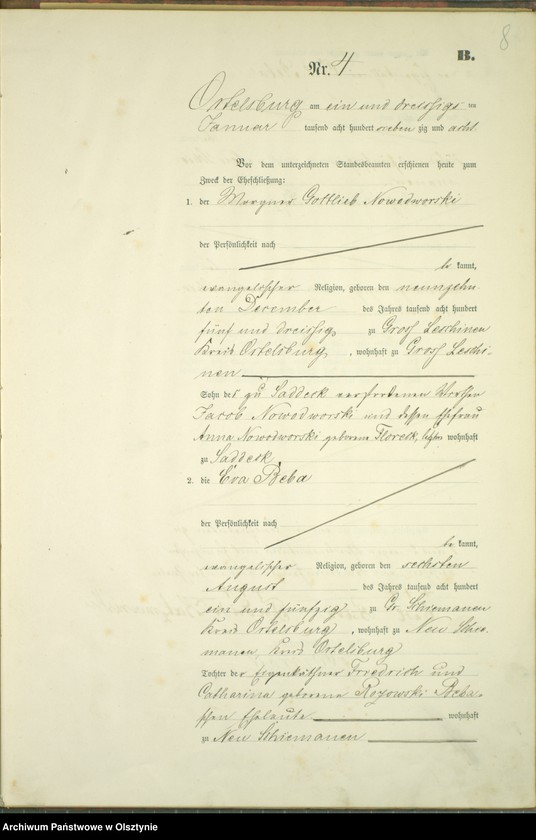 8
B.
Nr. 4
Ortelsburg am ein und dreißigsten
Januar tausend acht hundert sieben zig und acht
Vor dem unterzeichneten Standesbeamten erschienen heute zum
Zweck der Eheschließung:
1. der Gottlieb Nowodworski
der Persönlichkeit nach
be kannt,
evangelischer Religion, geboren den neunzehn-
ten December des Jahres tausend acht hundert
fünf und dreissig zu Groß Leschinen
Kreis Ortelsburg, wohnhaft zu Groß Leschi-
nen
Sohn des zu Saddek verstorbenen
Jacob Nowodworski und dessen Ehefrau
Anna Nowodworski geborene wohnhaft
zu Saddek.
2. die Eva Beba
der Persönlichkeit nach
be kannt,
evangelischer Religion, geboren den sechsten
August des Jahres tausend acht hundert
ein und fünfzig zu Gr. Schiemanen
Kreis Ortelsburg, wohnhaft zu Neu Schie-
manen, Kreis Ortelsburg
Tochter der Eigenkäthner Friedrich und
Catharina geborene Rozowski Beba-
schen Eheleute wohnhaft
zu Neu Schiemanen
Archiwum Państwowe w Olsztynie